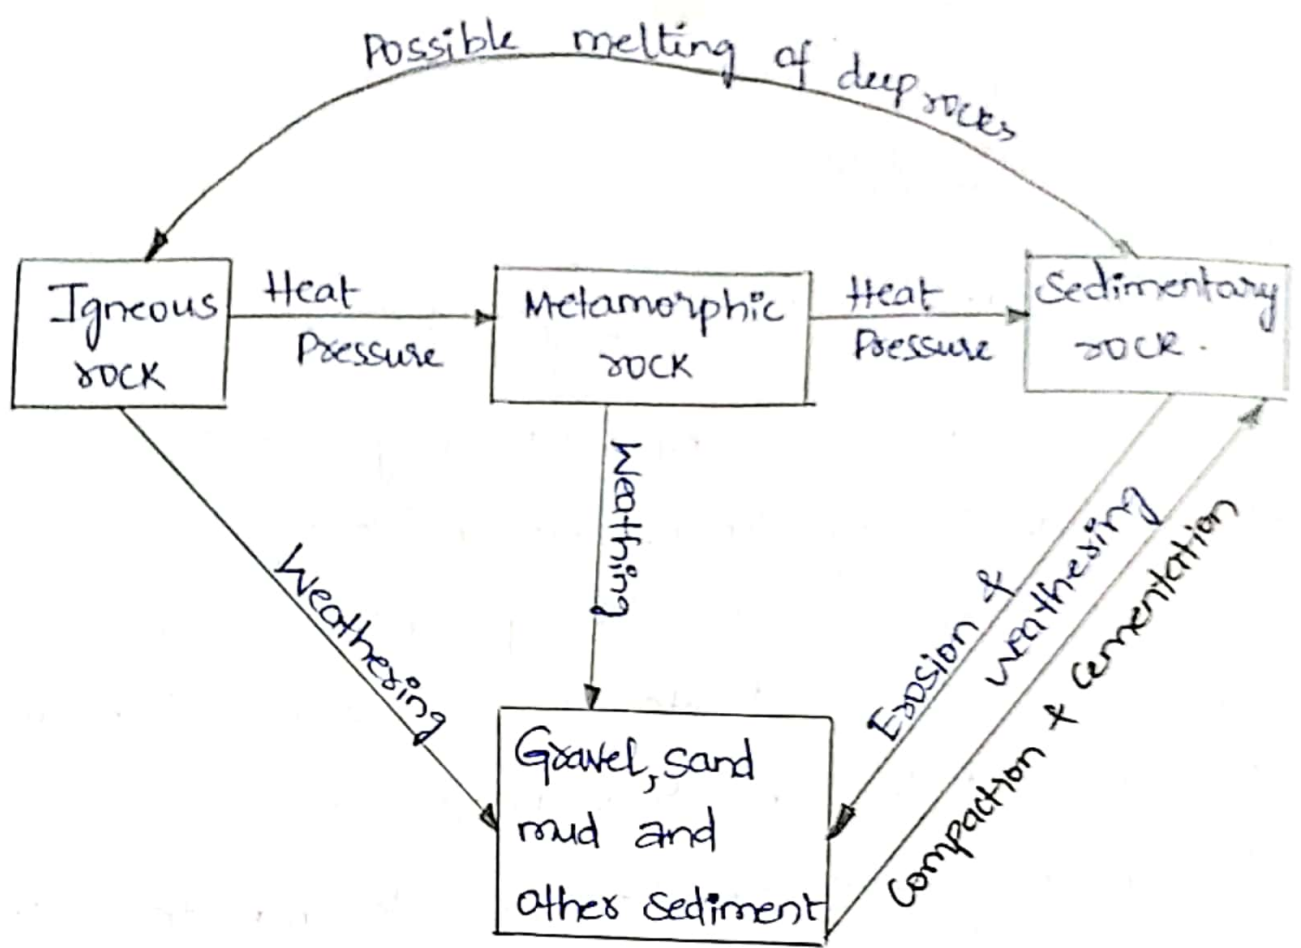 Possible melting of deep rocks
Igneous
rock
Heat
Pressure
Metamorphic
rock
Heat
Pressure
Sedimentary
rock.
Weathering
Weathing
Erosion &
weathering
Compaction & cementation
Gravel, sand
mud and
other sediment